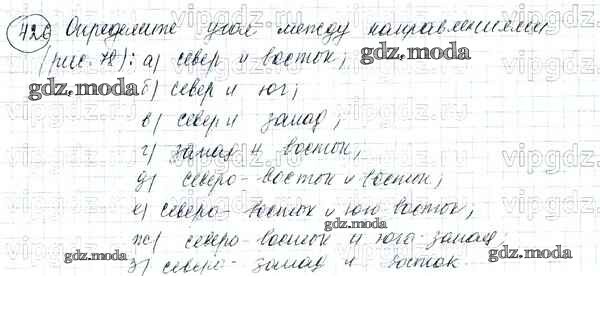 426 Определите угол между направлениями
(рис. 72): а) север и восток;
б) север и юг;
в) север и запад;
г) запад и восток;
д) северо-восток и восток;
е) северо-восток и юго восток;
ж) северо-восток и юго-запад;
з) северо-запад и восток.
gdz.moda
gdz.moda
gdz.moda
gdz.moda
gdz.moda
gdz.moda